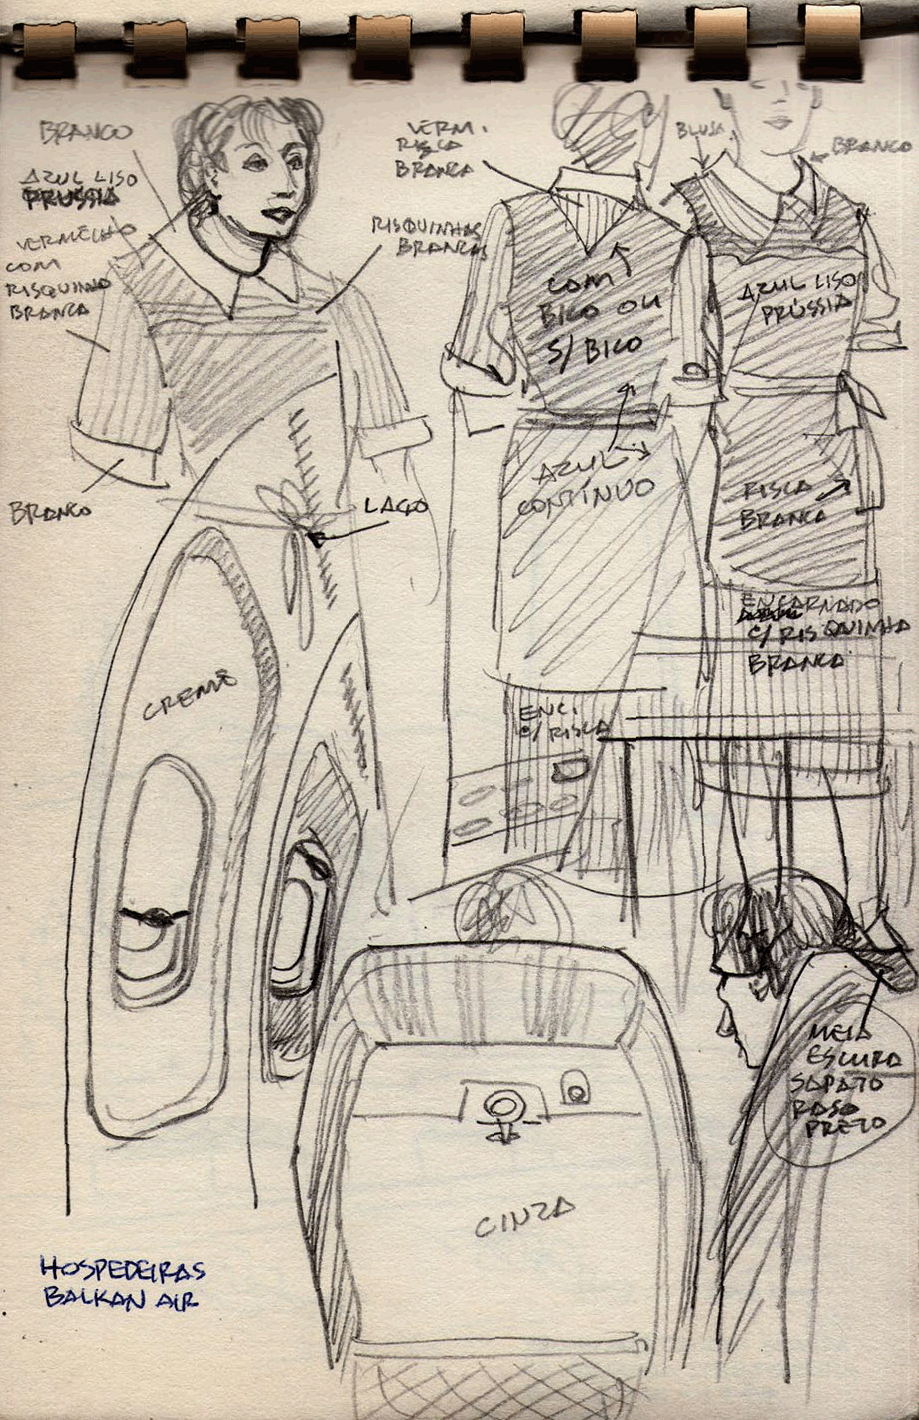 BRANCO
AZUL LISO
PRÚSSIA
VERMELHO
COM
RISQUINHO
BRANCA
BRANCO
RISQUINHAS
BRANCAS
LAÇO
VERM.
RISCA
BRANCA
COM
BICO OU
S/ BICO
AZUL
CONTÍNUO
ENC.
C/ RISCA
BLUSA
BRANCO
AZUL LISO
PRÚSSIA
RISCA
BRANCA
ENCARNADO
C/ RISQUINHA
BRANCA
CREME
CINZA
MEIA
ESCURA
SAPATO
RASO
PRETO
HOSPEDEIRAS
BALKAN AIR